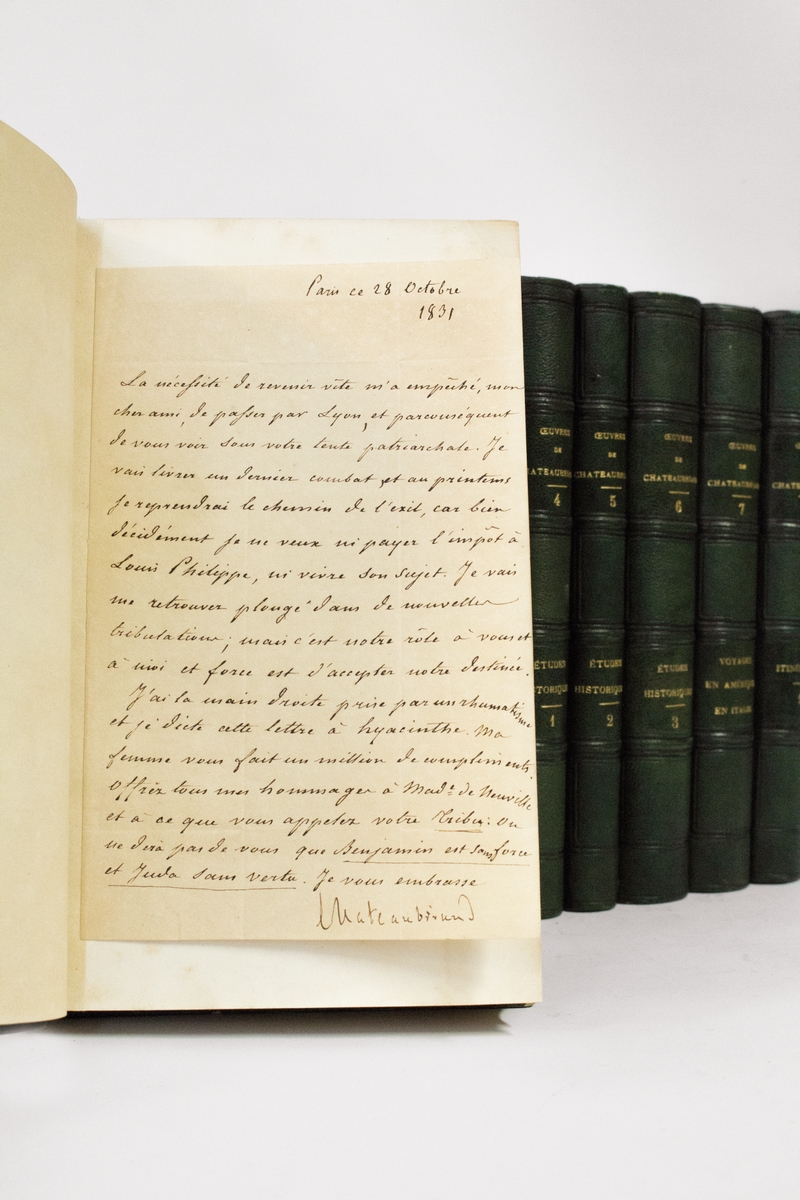 Paris ce 28 Octobre
1831
La nécessité de revenir vîte m'a empêché, mon
cher ami, de passer par Lyon, et parconséquent
de vous voir sous votre tente patriarchale. Je
vais livrer un dernier combat, et au printems
je reprendrai le chemin de l'exil, car bien
décidément je ne veux ni payer l'impôt à
Louis Philippe, ni vivre son sujet. Je vais
me retrouver plongé dans de nouvelles
tribulations; mais c'est notre rôle à vous et
à moi et force est d'accepter notre destinée.
J'ai la main droite prise par un rhumatisme
et je dicte cette lettre à hyacinthe. Ma
femme vous fait un million de compliments.
Offrez tous mes hommages à Made de Neuville
et à ce que vous appelez votre Tribu: On
ne dira pas de vous que Benjamin est sans force
et Juda sans vertu. Je vous embrasse
Chateaubriand
ŒUVRES
DE
CHATEAUBRIAND
4
ÉTUDES
HISTORIQUES
1
ŒUVRES
DE
CHATEAUBRIAND
5
ÉTUDES
HISTORIQUES
2
ŒUVRES
DE
CHATEAUBRIAND
6
ÉTUDES
HISTORIQUES
3
ŒUVRES
DE
CHATEAUBRIAND
7
VOYAGES
EN AMÉRIQUE
EN ITALIE